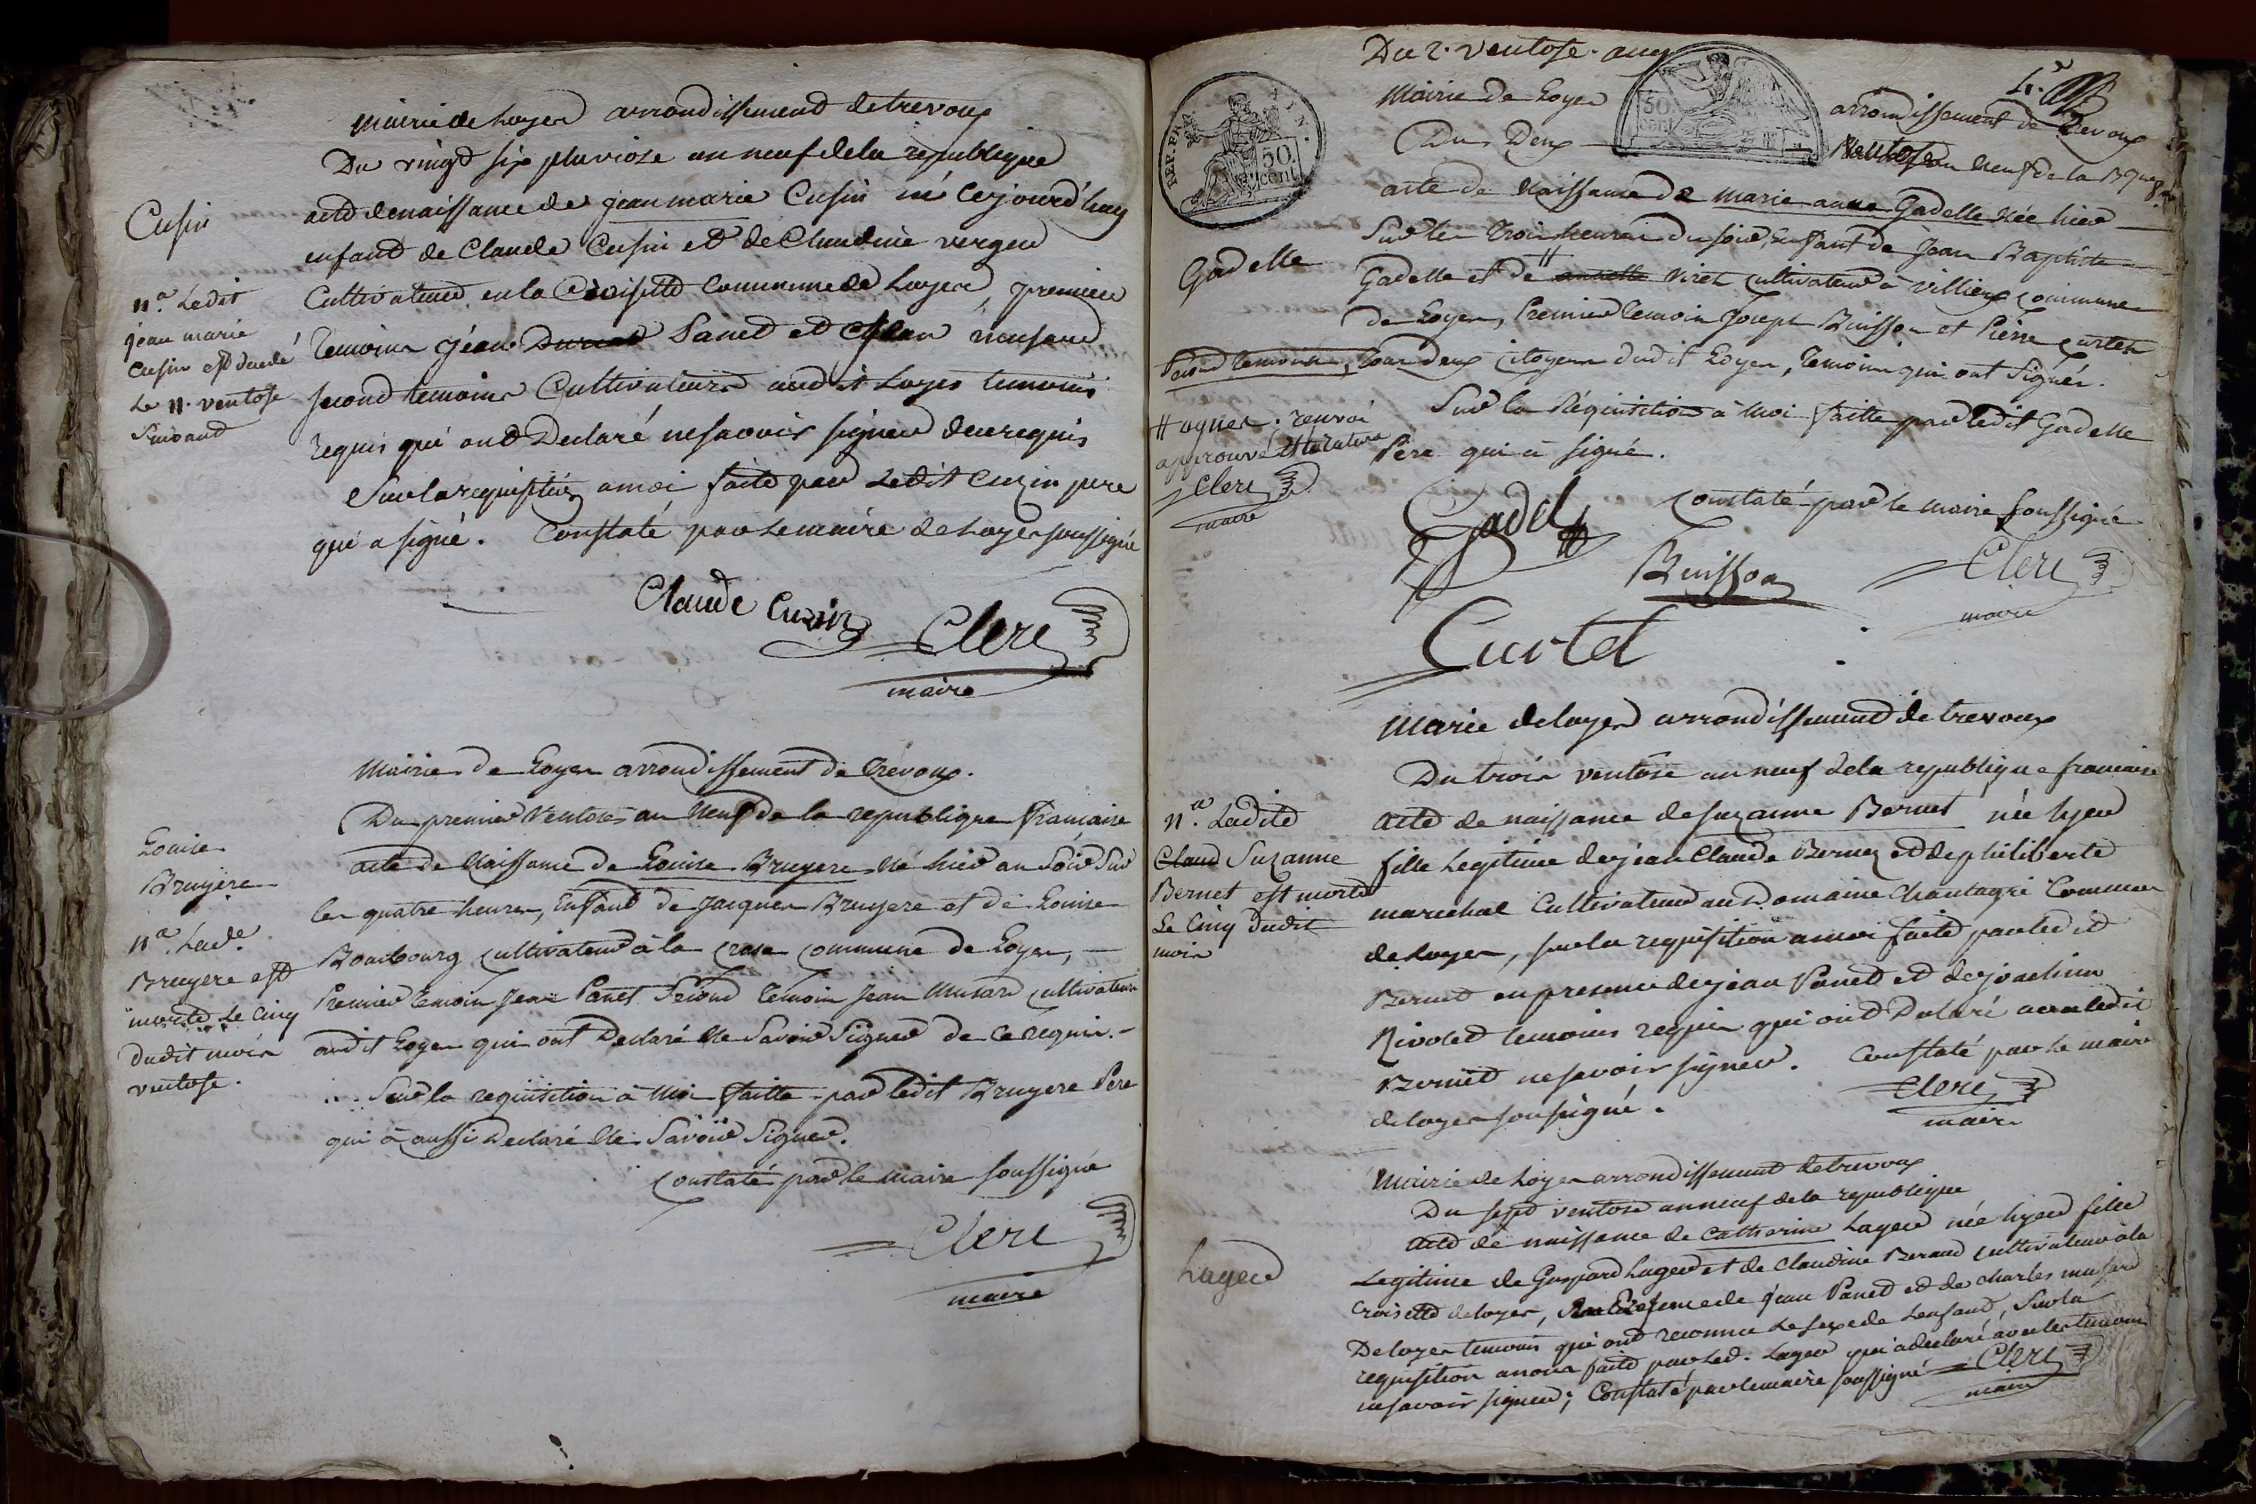 Mairie de Loyes arrondissement de trevoux
Du vingt six pluviose an neuf de la republique
acte de naissance de jean marie Cusin né cejourd'huy
enfant de Claude Cusin et de Claudine verger
Cultivateur en la Croisette Commune de Loyes, premier
temoin jean Panet et
second temoin Cultivateurs audit Loyes temoins
requis qui ont Declaré ne savoir signer de ce requis
Sur la requisition a moi faite par Ledit Cuzin pere
qui a signé. Constaté par le maire de Loyes soussigné
Claude Cuzin
Clerc
maire
Cusin
Na. Ledit
jean marie
Cusin est decedé
Le 11. ventose
Suivant
Mairie de Loyes arrondissement de Trevoux.
Du premier Ventose an Neuf de la republique francaise
acte de Naissance de Louise Bruyere né hier au Soir Sur
les quatre heures, Enfant de Jacques Bruyere et de Louise
Bourbourg cultivateur à la crose commune de Loyes,
Premier temoin Jean Panet Second temoin Jean Musard cultivateurs
audit Loyes qui ont Declaré Ne Savoir Signer de ce requis.
Sur la requisition à Moi faitte par ledit Bruyere Pere
qui à aussi Declaré Ne Savoir Signer.
Constaté par le maire soussigné
Clerc
maire
Louise
Bruyere
Na. Lade.
Bruyere est
morte Le Cinq
dudit mois
ventose.
Du 2. ventose. an 9
REP. FRA
50.
cent
50
cent
Mairie de Loyes arrondissement de Trevoux
Du Deux Ventose an Neuf de la
acte de Naissance de marie anne Gadelle Née hier
Sur les Trois heures du soir Enfant de Jean Baptiste
Gadelle et de # Viret cultivateur a Villieux commune
de Loyes, Premier temoin Joseph Buisson et Pierre Curtet
Second temoin, tous deux citoyens dudit Loyes, temoins qui ont Signés.
Sur la Réquisition à Moi faitte par ledit Gadelle
Père qui à signé.
Constaté par le maire soussigné
Gadelle
# agnes. renvoi
approuvé et rature
Clerc
maire
Gadel
Buisson
Clerc
maire
Curtet
Marie de loyes arrondissement de trevoux
Du trois ventose an neuf de la republique francaise
Acte de naissance de suzanne Bernet née hyer
fille Legitime de jean Claude Bernet et de philiberte
marechal Cultivateur au Domaine Chantagri Commune
de Loyes, sur la requisition a moi faite par ledit
Bernet en presence de jean Panet et de joachim
Rivolet temoins requis qui ont Declaré avec ledit
Bernet ne savoir signer. Constaté par le maire
de loyes soussigné.
Clerc
maire
Na. Ladite
Claud Suzanne
Bernet est morte
Le Cinq Dudit
mois
Mairie de Loyes arrondissement de trevoux
Du sept ventose an neuf de la republique
Acte de naissance de Catherine Lager née hyer fille
Legitime de Gaspard Lager et de Claudine Beraud cultivateur à la
Croisette de loyes, En Presence de jean Panet et de charles musard
De loyes temoins qui ont reconnu Le sexe de Lenfant, Sur la
requisition a nous faite par Led. Lager qui a declaré avec les temoins
ne savoir signer; Constaté par le maire soussigné
Clerc
maire
Lager